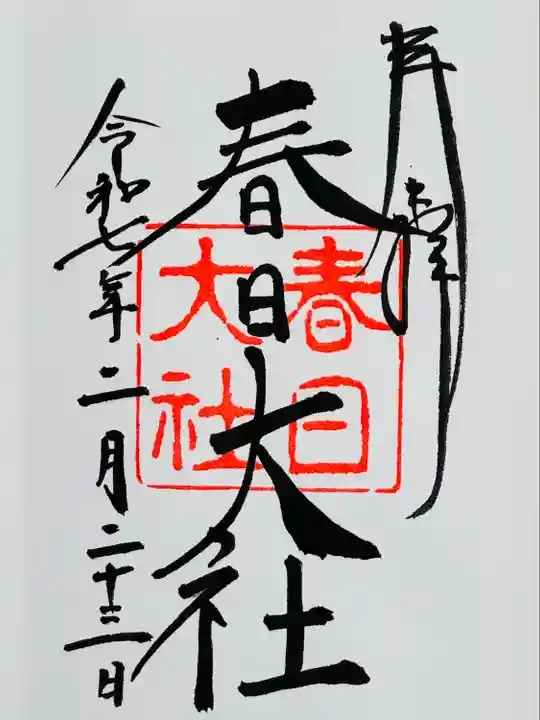 春日大社
春日
大社
令和七年二月二十三日